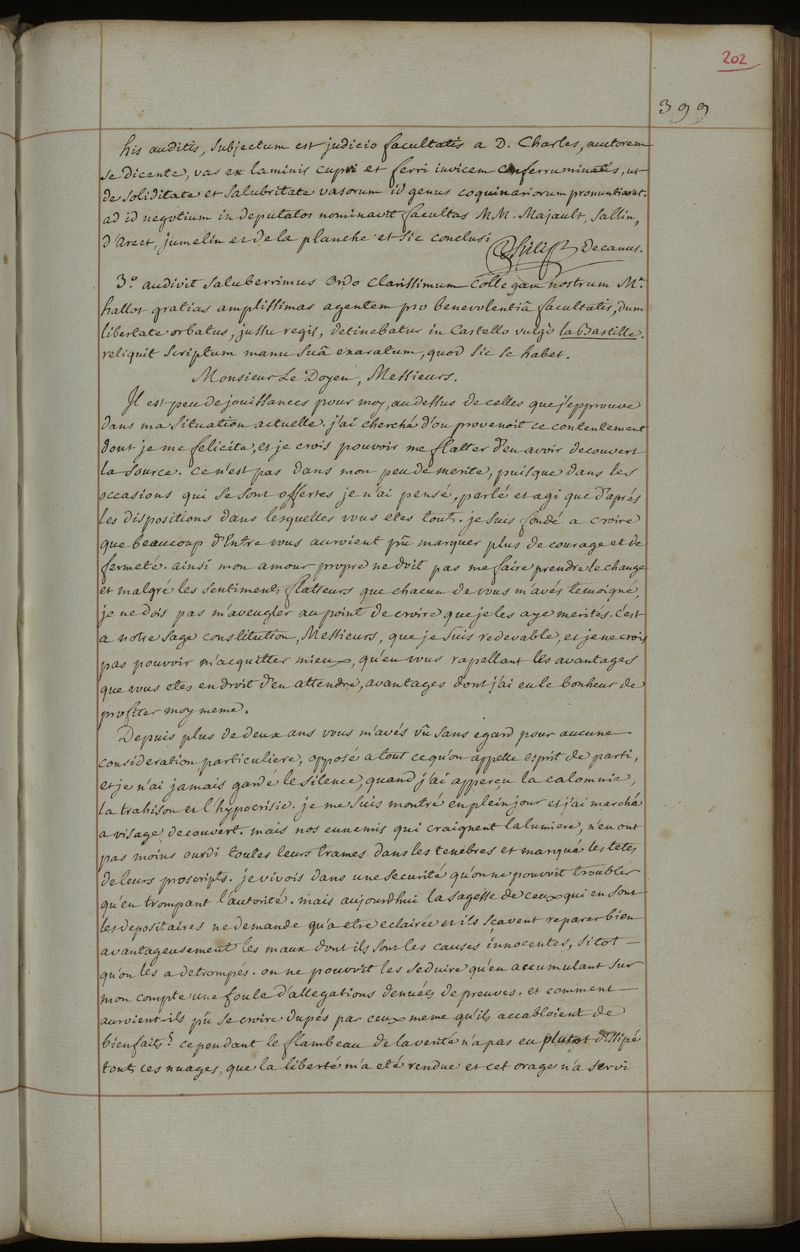 202
399
his auditis, subjectum est judicio facultatis a D. Charles, auctorem
se dicente, vas ex laminis cupri et ferri invicem conferruminatis, ut
de soliditate et salubritate vasorum id genus coquinariorum pronuntiaret.
ad id negotium in deputatos nominavit facultas MM. Majault, Sallin,
d'Arcet, jumelin et de la planche et sic conclusi
Decanus.
3.° audivit saluberrimus Ordo clarissimum Collegam nostrum Mr.
hallot gratias amplissimas agentem pro benevolentiâ facultatis, dum
libertate orbatus, jussu regis, detinebatur in Castello vulgò la Bastille.
reliquit scriptum manu suâ exaratum, quod sic se habet.
Monsieur Le Doyen, Messieurs.
Il est peu de jouissances pour moy, au dessus de celles que j'epprouve
dans ma situation actuelle. j'ai cherché d'ou provenoit ce contentement
dont je me felicite, et je crois pouvoir me flatter d'en avoir decouvert
la source. ce n'est pas dans mon peu de merite, puisque dans les
occasions qui se sont offertes je n'ai pensé, parlé et agi que d'aprés
les dispositions dans lesquelles vous etes tous. je suis fondé a croire
que beaucoup d'Entre vous auroient pû marquer plus de courage et de
fermeté. ainsi mon amour propre ne doit pas me faire prendre le change
et malgré les sentiments flatteurs que chacun de vous m'avés temoigné,
je ne dois pas m'aveugler au point de croire que je les aye merités. c'est
a notre sage constitution, Messieurs, que je suis redevable, et je ne crois
pas pouvoir m'acquitter mieux, qu'en vous rapellant les avantages
que vous etes en droit d'en attendre, avantages dont j'ai eu le bonheur de
profiter moy meme.
Depuis plus de deux ans vous m'avés vû sans egard pour aucune
consideration particuliere, opposé a tout ce qu'on appelle esprit de parti,
et je n'ai jamais gardé le silence, quand j'ai apperçu la calomnie,
la trahison et l'hypocrisie. je me suis montré en plein jour et j'ai marché
a visage decouvert. mais nos ennemis qui craignent la lumiere, n'en ont
pas moins ourdi toutes leurs trames dans les tenebres et marqué les tetes
de leurs proscripts. je vivois dans une securité qu'on ne pouvoit troubler
qu'en trompant l'autorité. mais aujourdhui la sagesse de ceux qui en sont
les depositaires ne demande qu'a etre eclairée et ils sçavent reparer bien
avantageusement les maux dont ils sont les causes innocentes, sitot
qu'on les a detrompés. on ne pouvoit les seduire qu'en accumulant sur
mon compte une foule d'allegations denuées de preuves. et comment
auroient-ils pû se croire dupés par ceux meme qu'ils accabloient de
bienfaits? cependant le flambeau de la verité n'a pas eu plutot dissipé
tous ces nuages, que la liberté m'a eté rendue et cet orage n'a servi